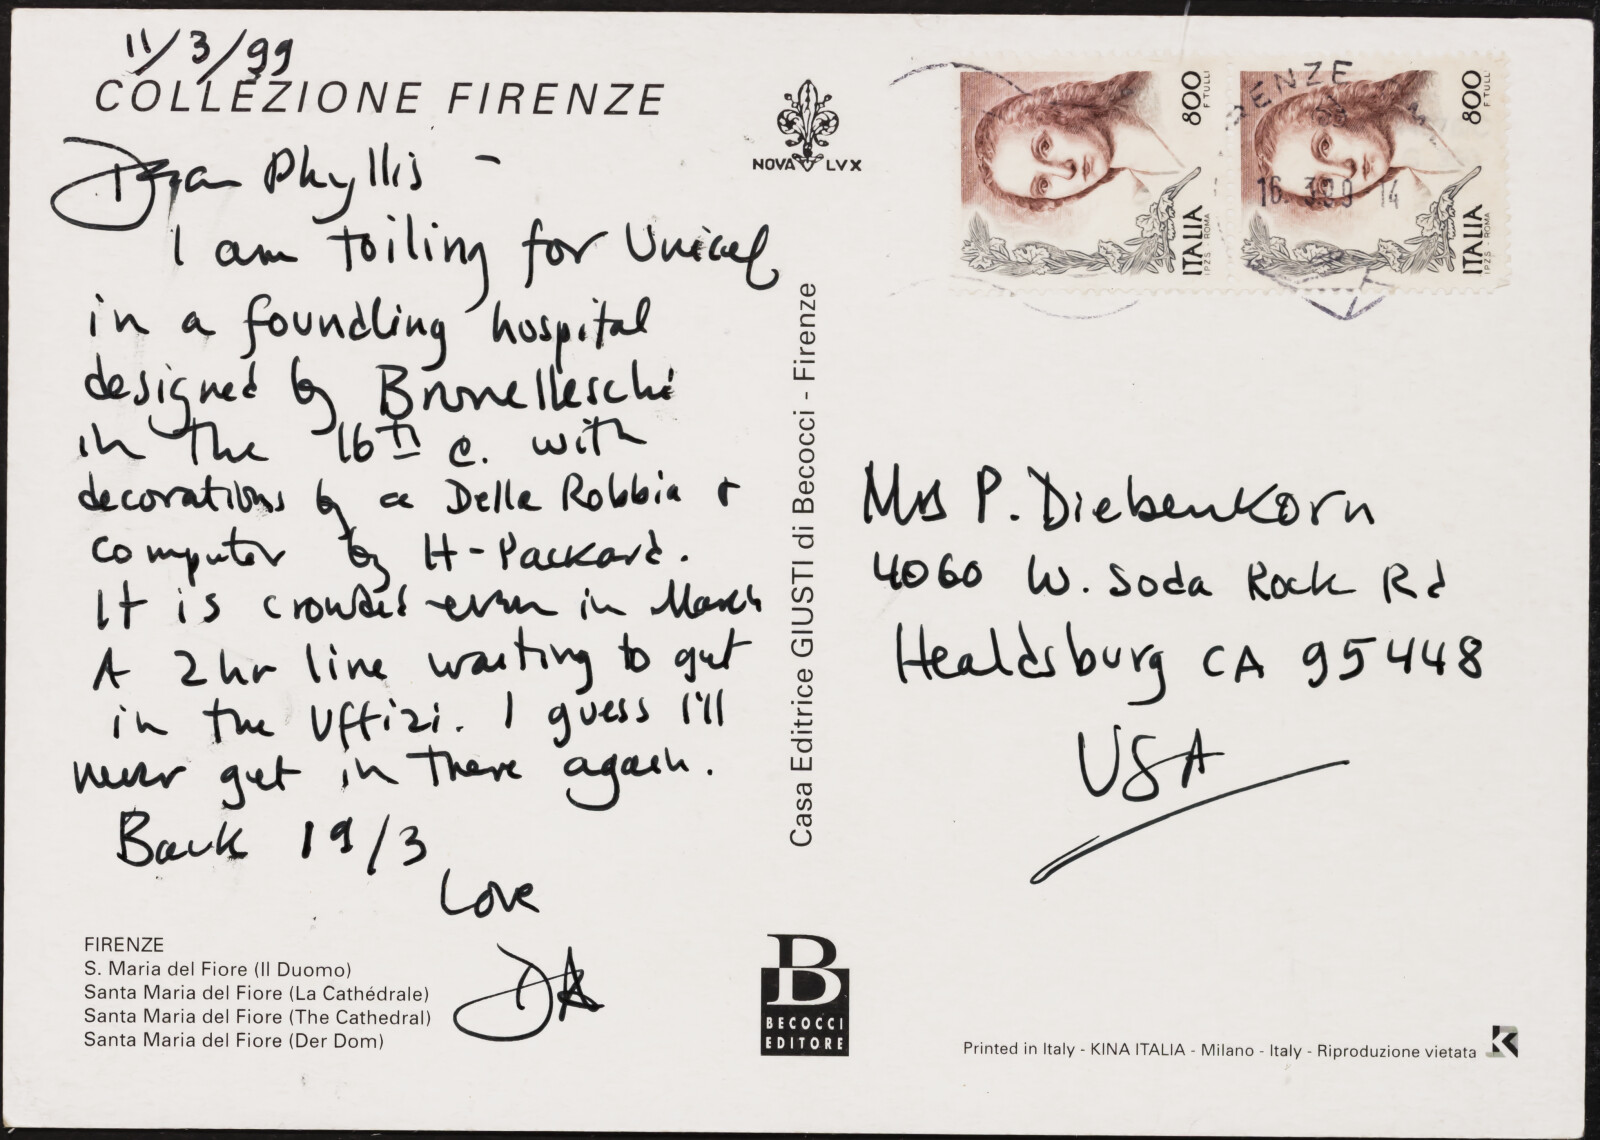 11/3/99
COLLEZIONE FIRENZE
Dear Phyllis –
I am toiling for Unicef
in a foundling hospital
designed by Brunelleschi
in the 16th c. with
decorations by a Della Robbia +
computer by H-Packard.
It is crowded even in March
A 2 hr line waiting to get
in the Uffizi. I guess I'll
never get in there again.
Back 19/3
Love
DA
FIRENZE
S. Maria del Fiore (Il Duomo)
Santa Maria del Fiore (La Cathédrale)
Santa Maria del Fiore (The Cathedral)
Santa Maria del Fiore (Der Dom)
NOVA LVX
Casa Editrice GIUSTI di Becocci - Firenze
B
BECOCCI
EDITORE
800
F TULLI
ITALIA
I.P.Z.S. - ROMA
800
F TULLI
ITALIA
I.P.Z.S. - ROMA
FIRENZE
16. 3.99 14
Mrs P. Diebenkorn
4060 W. Soda Rock Rd
Healdsburg CA 95448
USA
Printed in Italy - KINA ITALIA - Milano - Italy - Riproduzione vietata
K